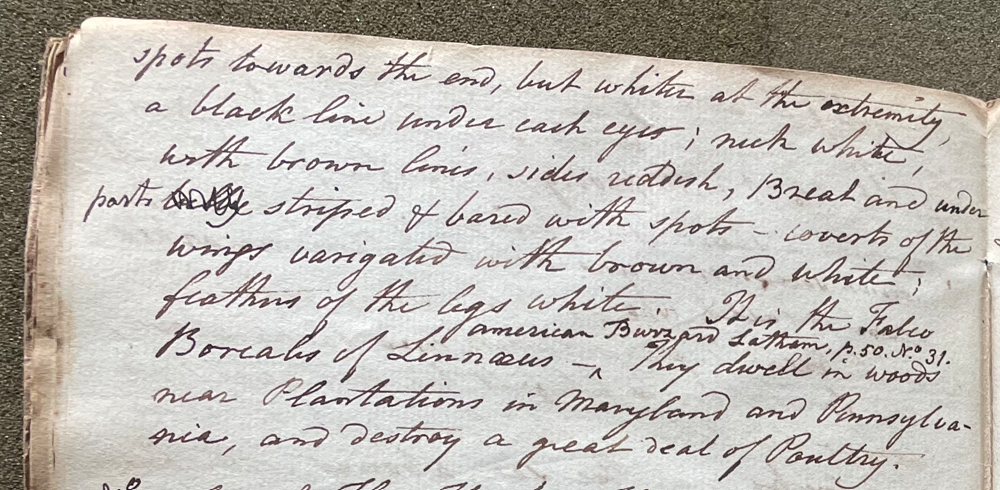 spots towards the end, but white at the extremity,
a black line under each eye; neck white,
with brown lines, sides reddish; Breat and under
parts striped & bared with spots - coverts of the
wings varigated with brown and white;
feathers of the legs white. It is the Falco
american Buzzard Latham, p. 50. No 31.
Borealis of Linnæus - ^ They dwell in woods
near Plantations in Maryland and Pennsylva-
nia, and destroy a great deal of Poultry.